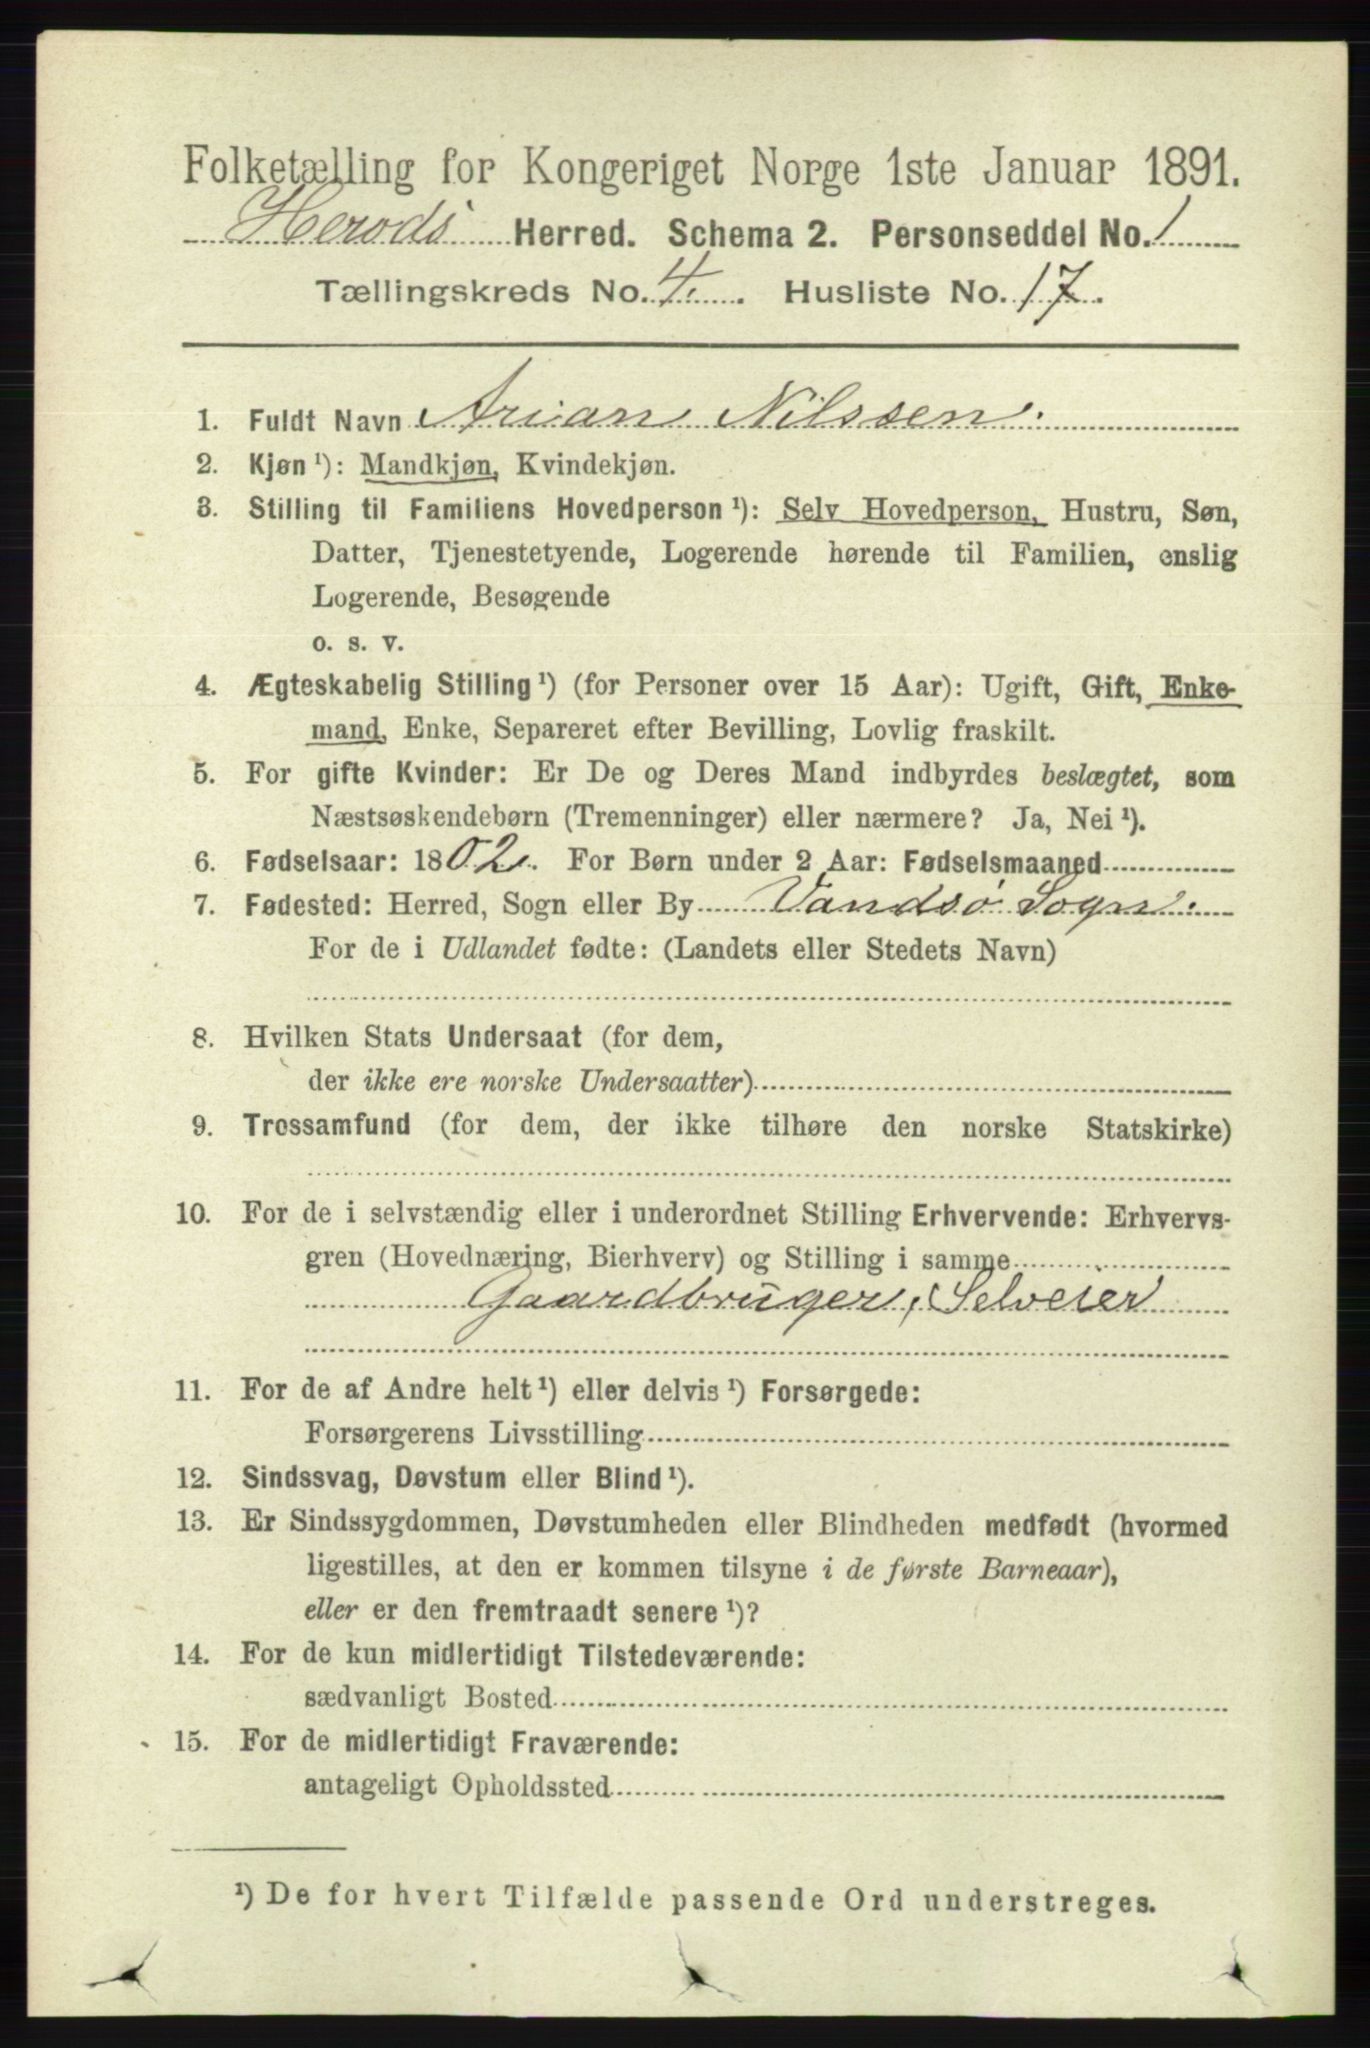 Folketælling for Kongeriget Norge 1ste Januar 1891.
Herøds Herred. Schema 2. Personseddel No. 1
Tællingskreds No. 4. Husliste No. 17.
1. Fuldt Navn Arian Nilssen.
2. Kjøn ¹): Mandkjøn, Kvindekjøn.
3. Stilling til Familiens Hovedperson ¹): Selv Hovedperson, Hustru, Søn,
Datter, Tjenestetyende, Logerende hørende til Familien, enslig
Logerende, Besøgende
o. s. v.
4. Ægteskabelig Stilling ¹) (for Personer over 15 Aar): Ugift, Gift, Enke-
mand, Enke, Separeret efter Bevilling, Lovlig fraskilt.
5. For gifte Kvinder: Er De og Deres Mand indbyrdes beslægtet, som
Næstsøskendebørn (Tremenninger) eller nærmere? Ja, Nei ¹).
6. Fødselsaar: 1802. For Børn under 2 Aar: Fødselsmaaned
7. Fødested: Herred, Sogn eller By Vandsø Sogn.
For de i Udlandet fødte: (Landets eller Stedets Navn)
8. Hvilken Stats Undersaat (for dem,
der ikke ere norske Undersaatter)
9. Trossamfund (for dem, der ikke tilhøre den norske Statskirke)
10. For de i selvstændig eller i underordnet Stilling Erhvervende: Erhvervs-
gren (Hovednæring, Bierhverv) og Stilling i samme
Gaardbruger, Selveier
11. For de af Andre helt ¹) eller delvis ¹) Forsørgede:
Forsørgerens Livsstilling
12. Sindssvag, Døvstum eller Blind ¹).
13. Er Sindssygdommen, Døvstumheden eller Blindheden medfødt (hvormed
ligestilles, at den er kommen tilsyne i de første Barneaar),
eller er den fremtraadt senere ¹)?
14. For de kun midlertidigt Tilstedeværende:
sædvanligt Bosted
15. For de midlertidigt Fraværende:
antageligt Opholdssted
¹) De for hvert Tilfælde passende Ord understreges.